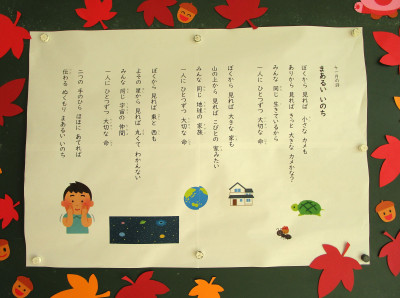 十一月の詩
まあるい いのち
ぼくから 見れば 小さな カメも
ありから 見れば きっと 大きな カメかな？
みんな 同じ 生きているから
一人に ひとつずつ 大切な 命
ぼくから 見れば 大きな 家も
山の上から 見れば こびとの 家みたい
みんな 同じ 地球の 家族
一人に ひとつずつ 大切な 命
ぼくから 見れば 東と 西も
よその 星から 見れば 丸くて わかんない
みんな 同じ 宇宙の 仲間
一人に ひとつずつ 大切な 命
二つの 手のひら ほほに あてれば
伝わる ぬくもり まあるい いのち